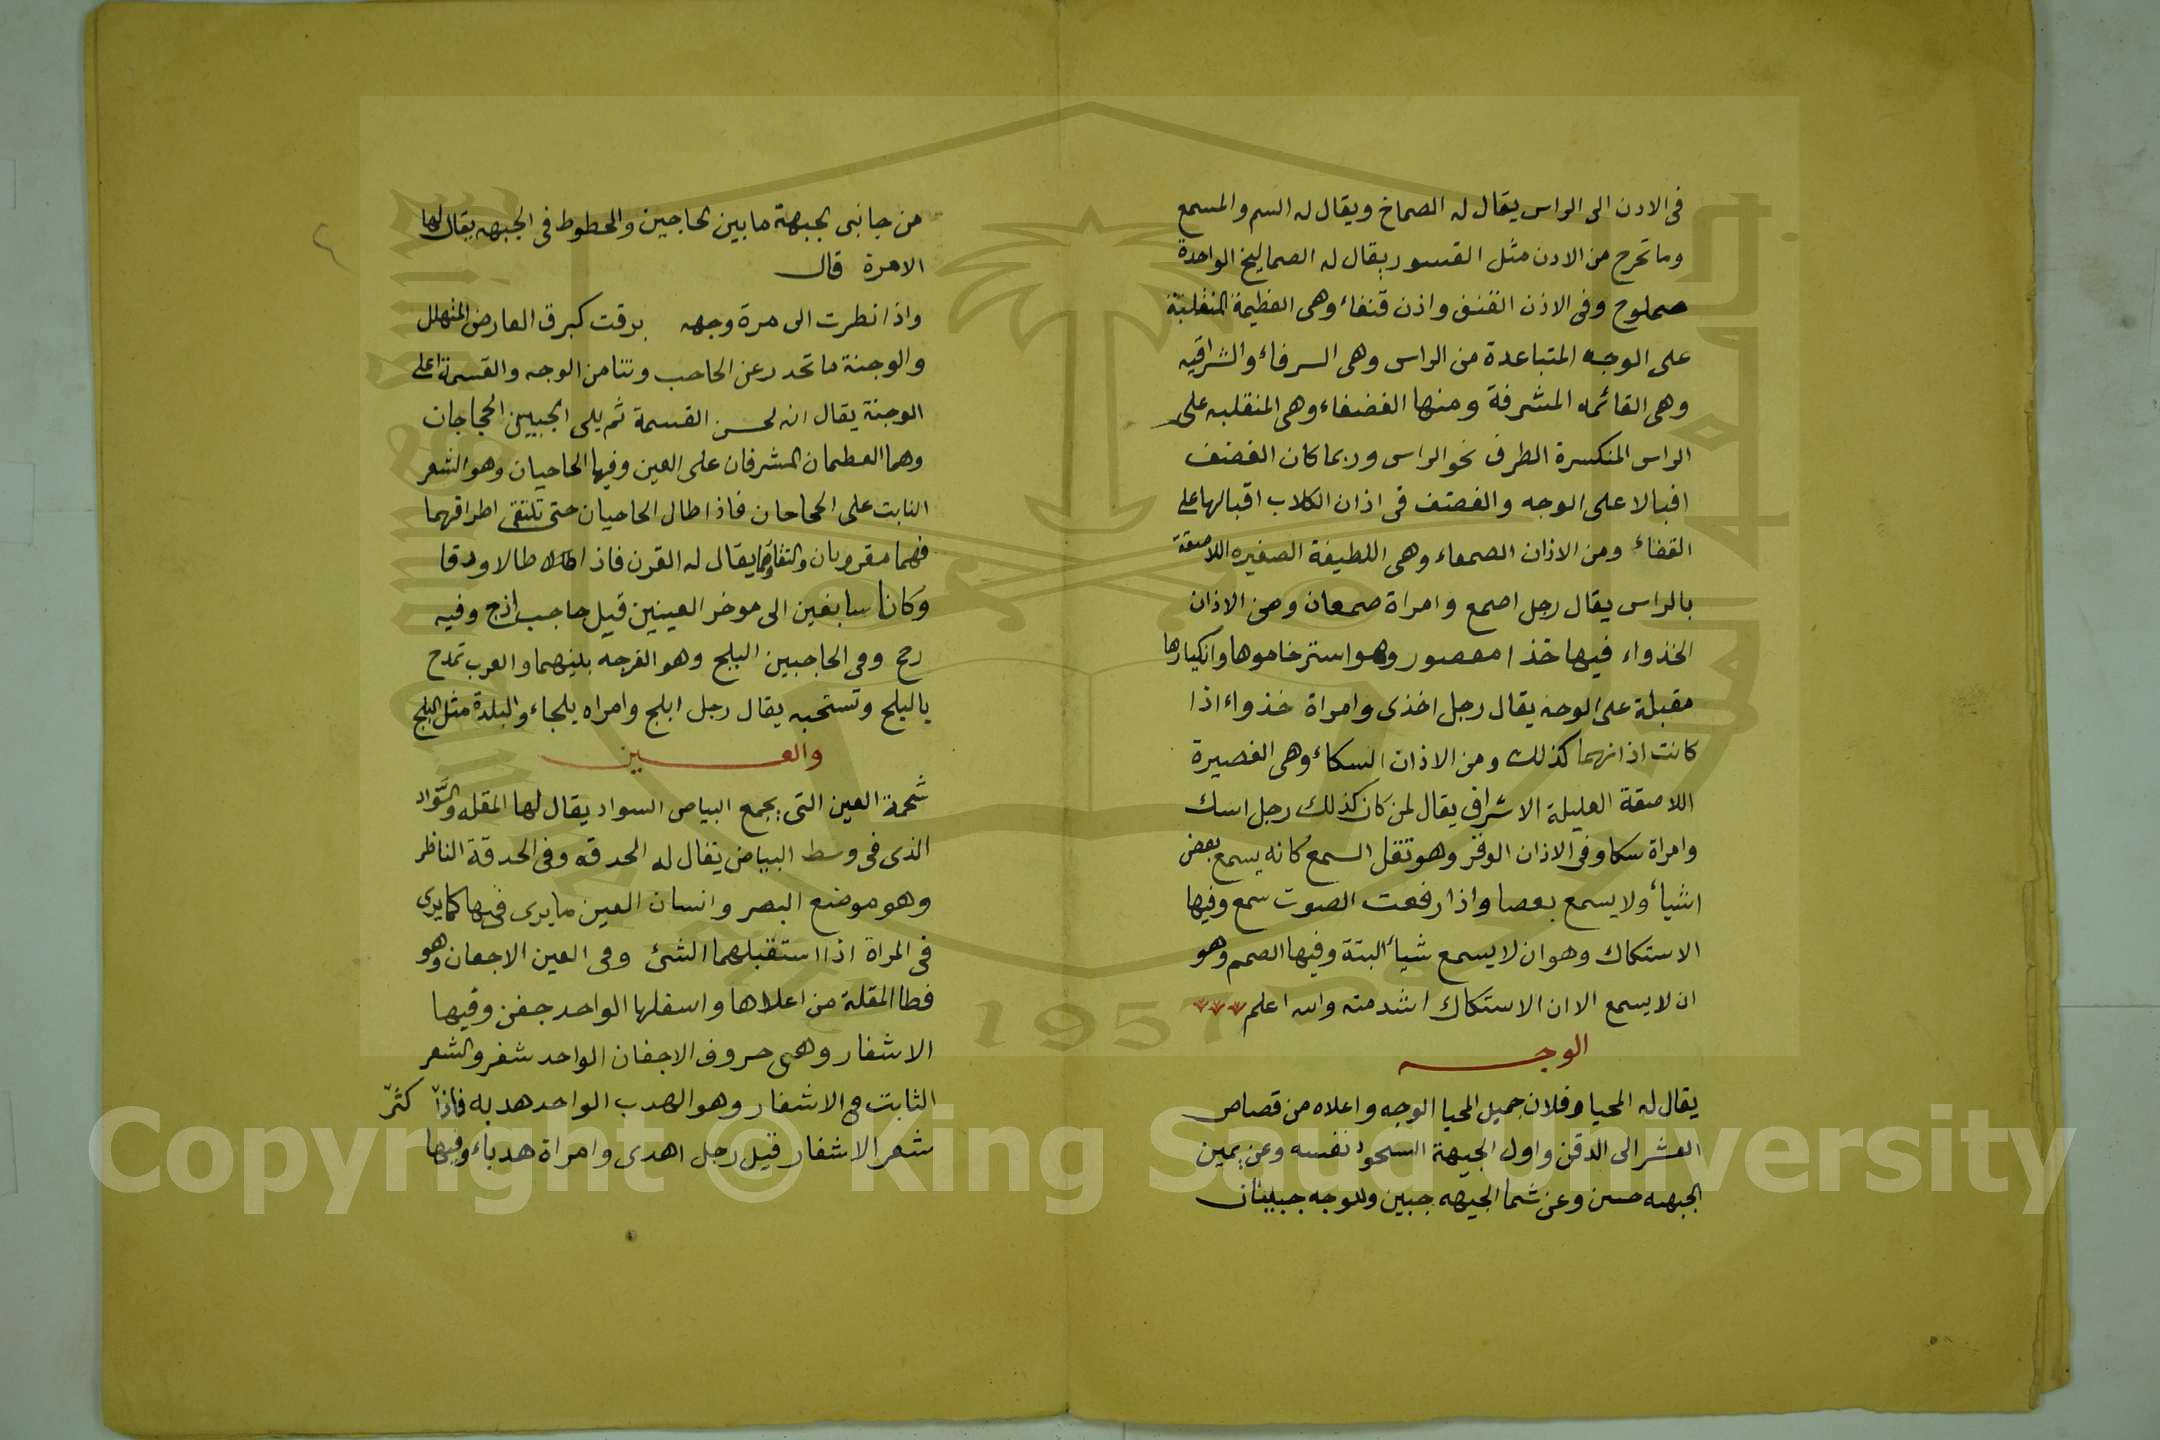 فى الاذن الى الراس يقال له الصماخ ويقال له السم والمسمع
وما تخرج من الاذن مثل القسور يقال له الصماليخ الواحدة
صملوخ وفى الاذن القنف واذن قنفاء وهى العظيمة المنقلبة
على الوجه المتباعدة من الراس وهى السرفاء والشراقيه
وهى القائمه المشرفة ومنها الغضفاء وهى المنقلبه على
الراس المنكسرة الطرف نحو الراس وربما كان الغضف
اقبالا على الوجه والغضف فى اذان الكلاب اقبالها على
القفاء ومن الاذان الصمعاء وهى اللطيفة الصغيره اللاصقة
بالراس يقال رجل اصمع وامراة صمعان ومن الاذان
الخذواء فيها خذا مقصور وهو استرخاموها وانكبارها
مقبلة على الوجه يقال رجل اخذى وامراة خذواء اذا
كانت اذانهما كذلك ومن الاذان السكاء وهى القصيرة
اللاصقة القليلة الاشراف يقال لمن كان كذلك رجل اسك
وامراة سكا وفى الاذان الوقر وهو تقل السمع كانه يسمع بعض
اشياء ولا يسمع بعضا واذا رفعت الصوت سمع وفيها
الاستكاك وهو ان لا يسمع شيأ البتة وفيها الصمم وهو
ان لا يسمع الا ان الاستكاك اشد منه والله اعلم
الوجه
يقال له المحيا وفلان جميل المحيا الوجه واعلاه من قصاص
العشر الى الدقن واول الجبهة السحود نفسه وعن يمين
الجبهه حسن وعن شما الجبهه جبين وللوجه جبينان
من جانبى الجبهة ما بين الحاجبين والخطوط فى الجبهه يقال لها
الاسرة قال
واذا نظرت الى سرة وجهه برقت كبرق العارض المتهلل
والوجنة ما تحدر عن الحاجب ونتا من الوجه والقسمة اعلى
الوجنة يقال انه لحسن القسمة ثم يلى الجبين الحجاجان
وهما العظمان المشرفان على العين وفيها الحاجبان وهو الشعر
النابت على الحجاحان فاذا طال الحاجبان حتى تلتقى اطرافهما
فهما مقرونان والتقاؤهما يقال له القرن فاذا طالا ودقا
وكانا سابغين الى موخر العينين قيل حاجب ازج وفيه
زجج وفى الحاجبين البلج وهو الفرجه بينهما والعرب تمدح
بالبلج وتستحبه يقال رجل ابلج وامراه بلجاء والبلدة مثل البلج
والعين
شحمة العين التى تجمع البياض السواد يقال لها المقله والسَّوَاد
الذى فى وسط البياض يقال له الحدقه وفى الحدقة الناظر
وهو موضع البصر وانسان العين ما يرى فيها كما يرى
فى المراة اذا استقبلهما الشئ وفى العين الاجفان وهو
غطا المقلة من اعلاها واسفلها الواحد جفن وفيها
الاشفار وهى حروف الاجفان الواحد شفر والشعر
الثابت فى الاشفار وهو الهدب الواحد هدبه فاذا كثر
شعر الاشفار قيل رجل اهدى وامراة هدباء وفيها
Copyright © King Saud University
1957